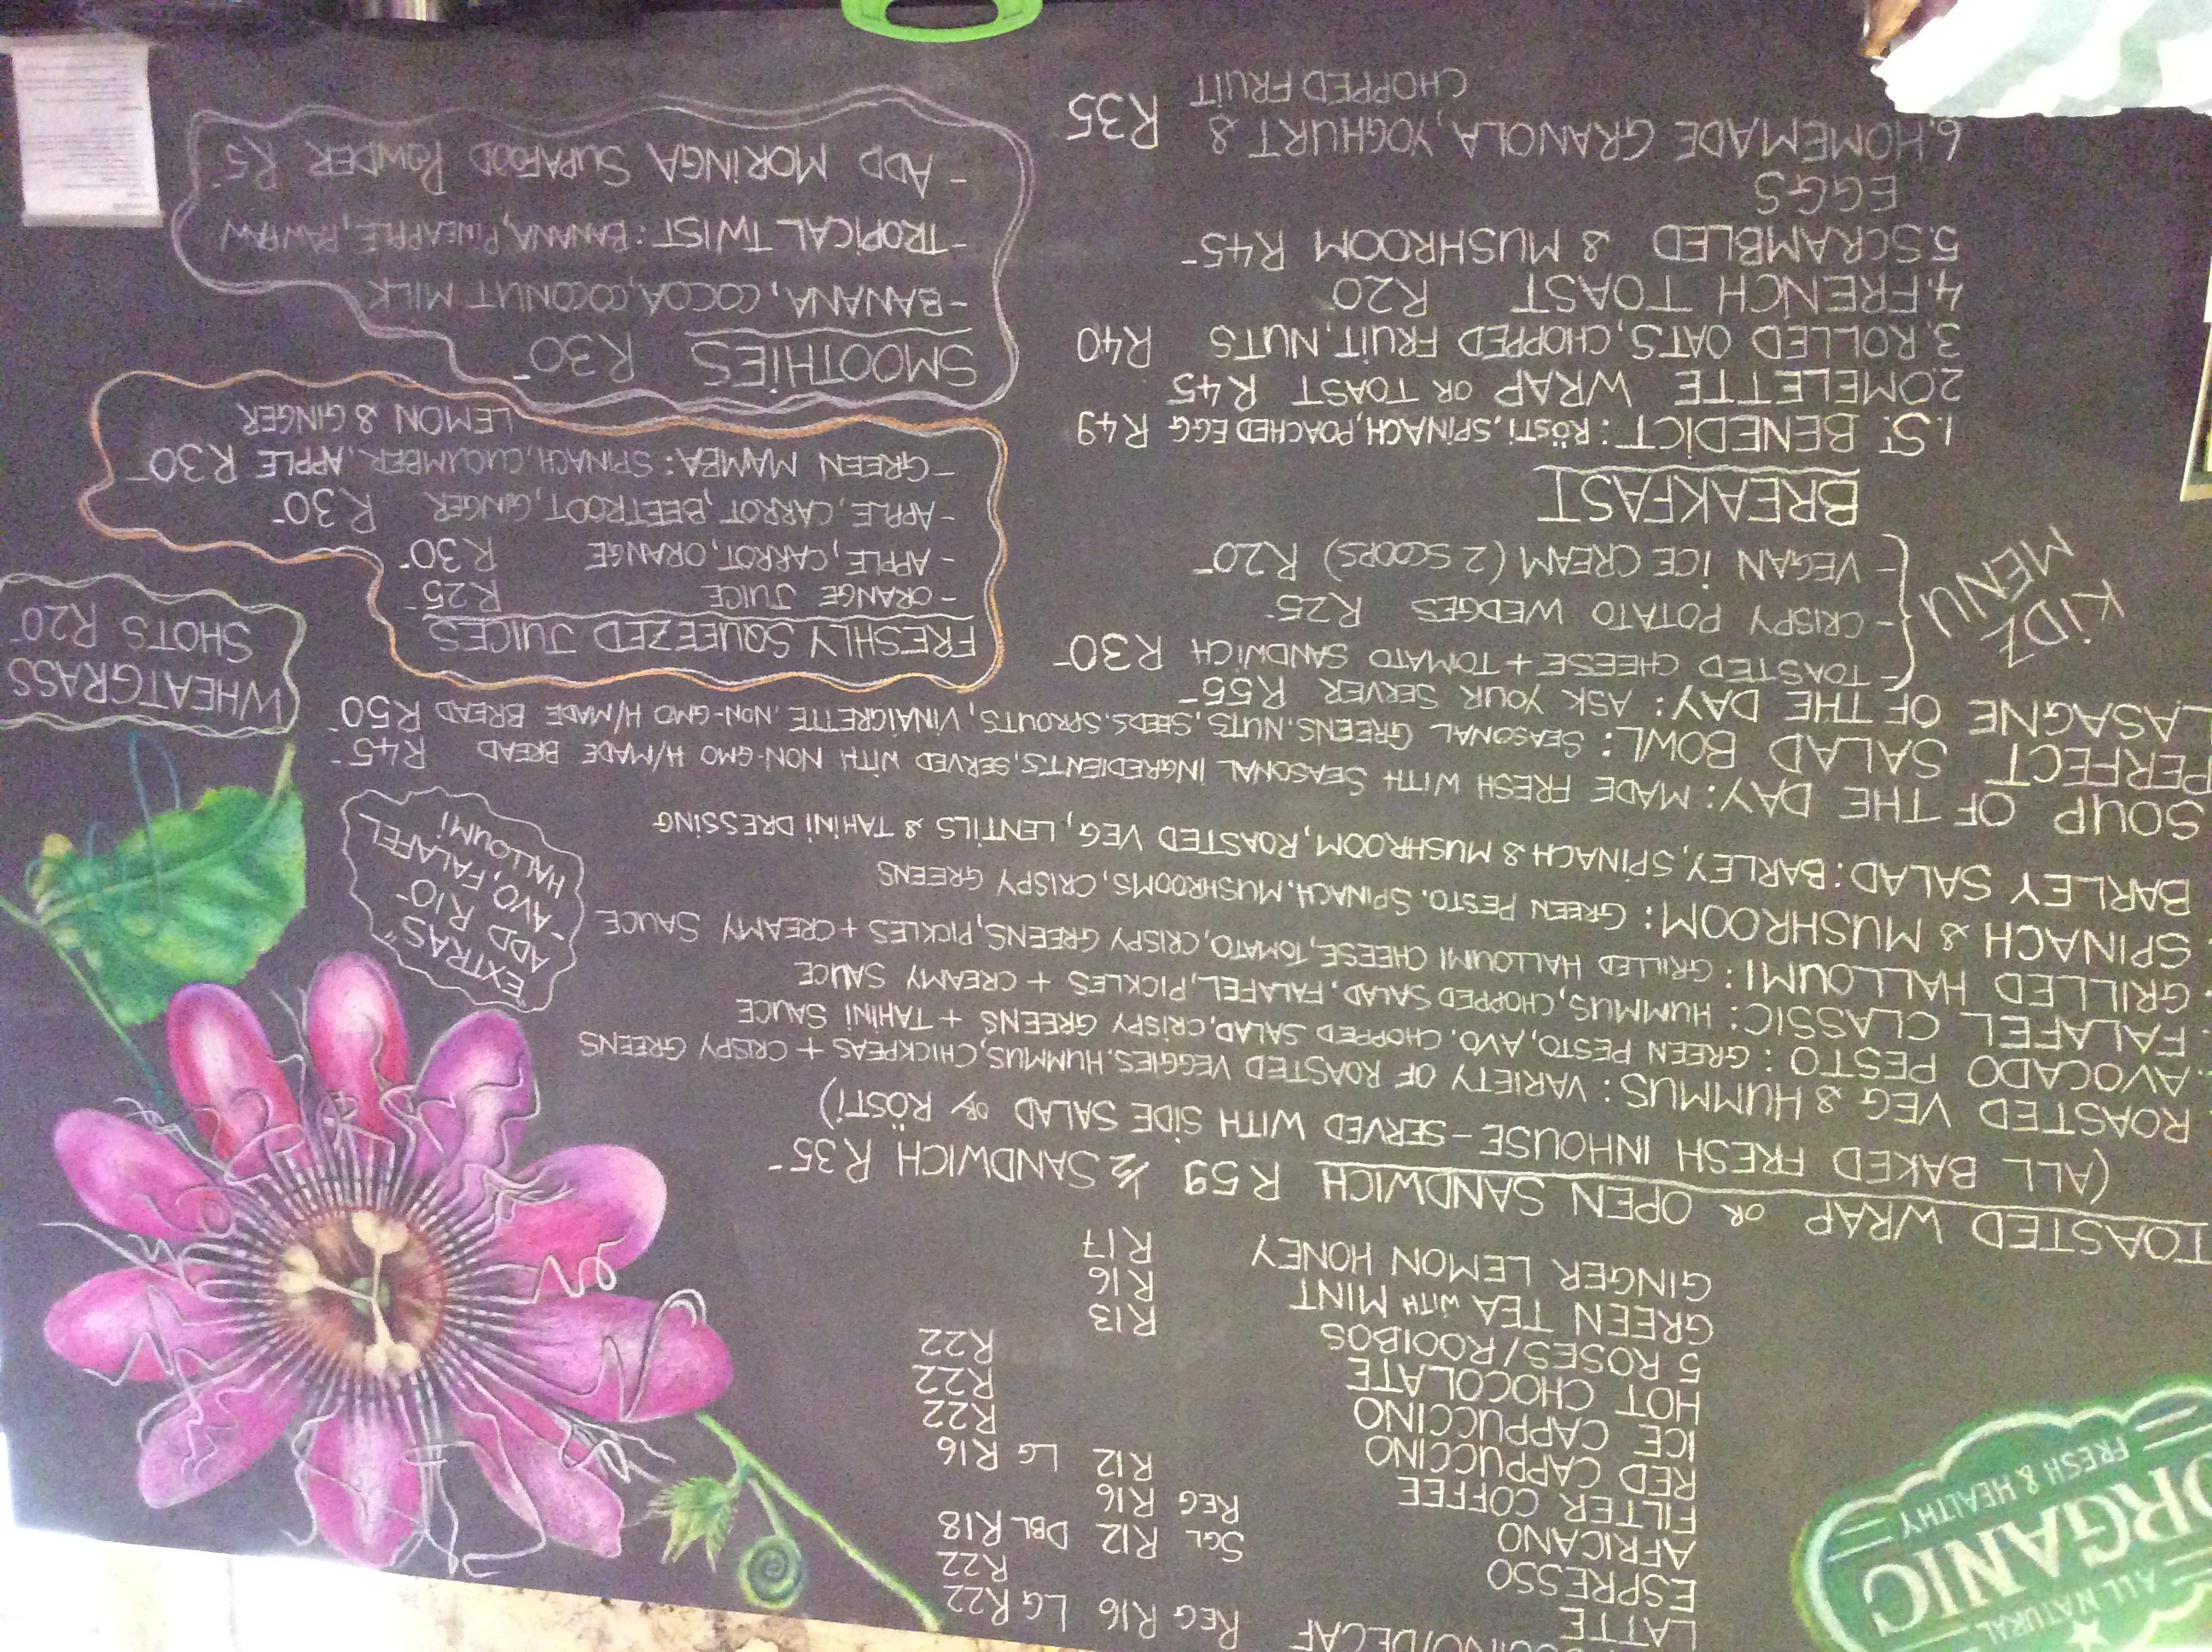 ALL NATURAL
ORGANIC
FRESH & HEALTHY
REG R16 LG R22
LATTE R22
ESPRESSO SGL R12 DBL R18
AFRICANO REG R16
FILTER COFFEE R12 LG R16
RED CAPPUCCINO R22
ICE CAPPUCCINO R22
HOT CHOCOLATE R22
5 ROSES/ROOIBOS R13
GREEN TEA WITH MINT R16
GINGER LEMON HONEY R17
TOASTED WRAP OR OPEN SANDWICH R59 1/2 SANDWICH R35-
(ALL BAKED FRESH INHOUSE - SERVED WITH SIDE SALAD OR RÖSTI)
ROASTED VEG & HUMMUS: VARIETY OF ROASTED VEGGIES, HUMMUS, CHICKPEAS + CRISPY GREENS
AVOCADO PESTO: GREEN PESTO, AVO, CHOPPED SALAD, CRISPY GREENS + TAHINI SAUCE
FALAFEL CLASSIC: HUMMUS, CHOPPED SALAD, FALAFEL, PICKLES + CREAMY SAUCE
GRILLED HALLOUMI: GRILLED HALLOUMI CHEESE, TOMATO, CRISPY GREENS, PICKLES + CREAMY SAUCE
SPINACH & MUSHROOM: GREEN PESTO, SPINACH, MUSHROOMS, CRISPY GREENS
BARLEY SALAD: BARLEY, SPINACH & MUSHROOM, ROASTED VEG, LENTILS & TAHINI DRESSING
"EXTRAS"
ADD R10-
-AVO, FALAFEL
HALLOUMI
SOUP OF THE DAY: MADE FRESH WITH SEASONAL INGREDIENTS, SERVED WITH NON-GMO H/MADE BREAD R45-
PERFECT SALAD BOWL: SEASONAL GREENS, NUTS, SEEDS, SPROUTS, VINAIGRETTE, NON-GMO H/MADE BREAD R50-
LASAGNE OF THE DAY: ASK YOUR SERVER R55-
KIDZ
MENU
- TOASTED CHEESE + TOMATO SANDWICH R30-
- CRISPY POTATO WEDGES R25-
- VEGAN ICE CREAM (2 SCOOPS) R20-
BREAKFAST
1. ST BENEDICT: RÖSTI, SPINACH, POACHED EGG R49
2. OMELETTE WRAP OR TOAST R45
3. ROLLED OATS, CHOPPED FRUIT, NUTS R40
4. FRENCH TOAST R20-
5. SCRAMBLED & MUSHROOM R45-
EGGS
6. HOMEMADE GRANOLA, YOGHURT & R35
CHOPPED FRUIT
WHEATGRASS
SHOTS R20-
FRESHLY SQUEEZED JUICES
- ORANGE JUICE R25-
- APPLE, CARROT, ORANGE R30-
- APPLE, CARROT, BEETROOT, GINGER R30-
- GREEN MAMBA: SPINACH, CUCUMBER, APPLE R30-
LEMON & GINGER
SMOOTHIES R30-
- BANANA, COCOA, COCONUT MILK
- TROPICAL TWIST: BANANA, PINEAPPLE, PAWPAW
- ADD MORINGA SUPAFOOD POWDER R5-